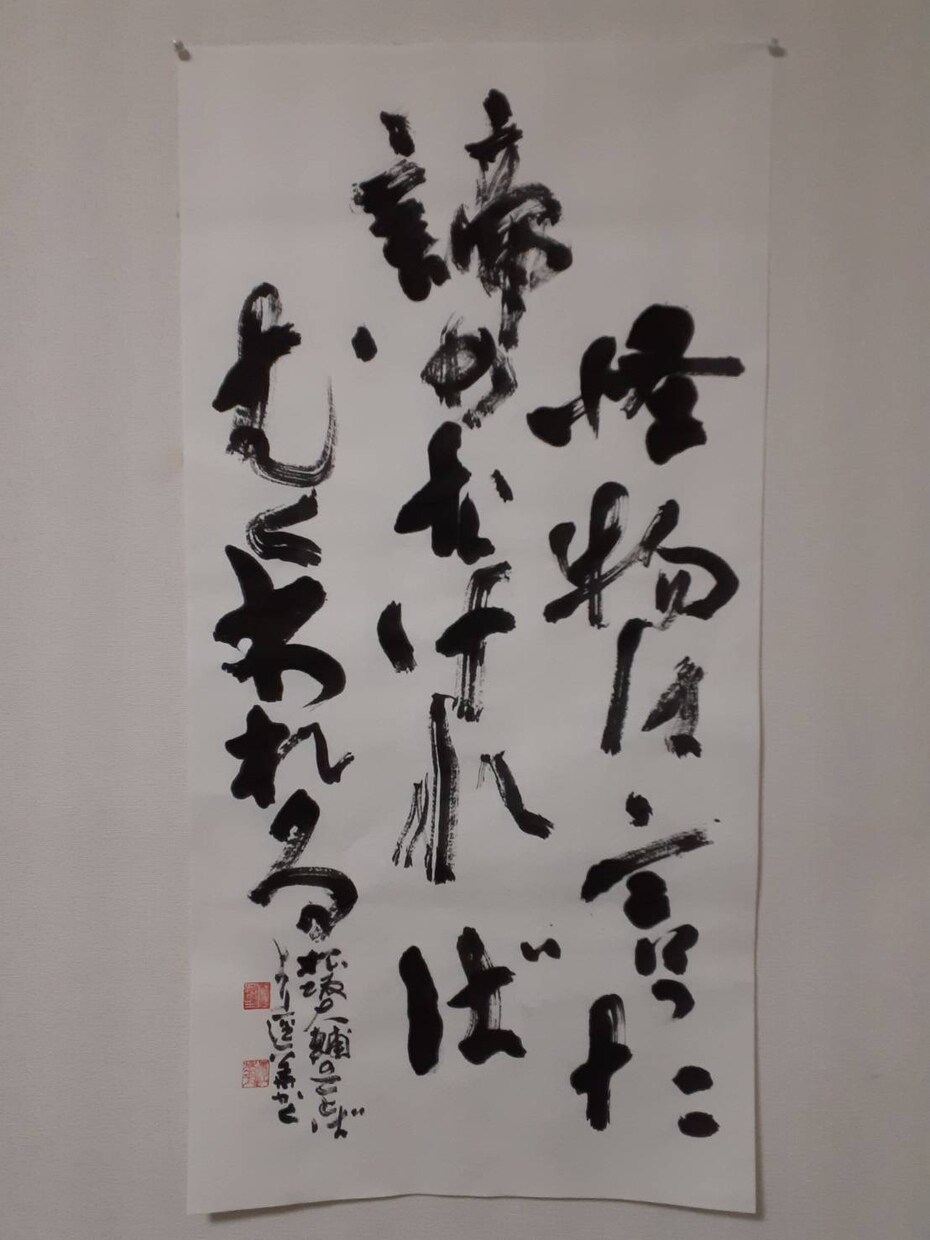 怪物は言った
諦めなければ
むくわれる
松坂大輔のことば
より かく